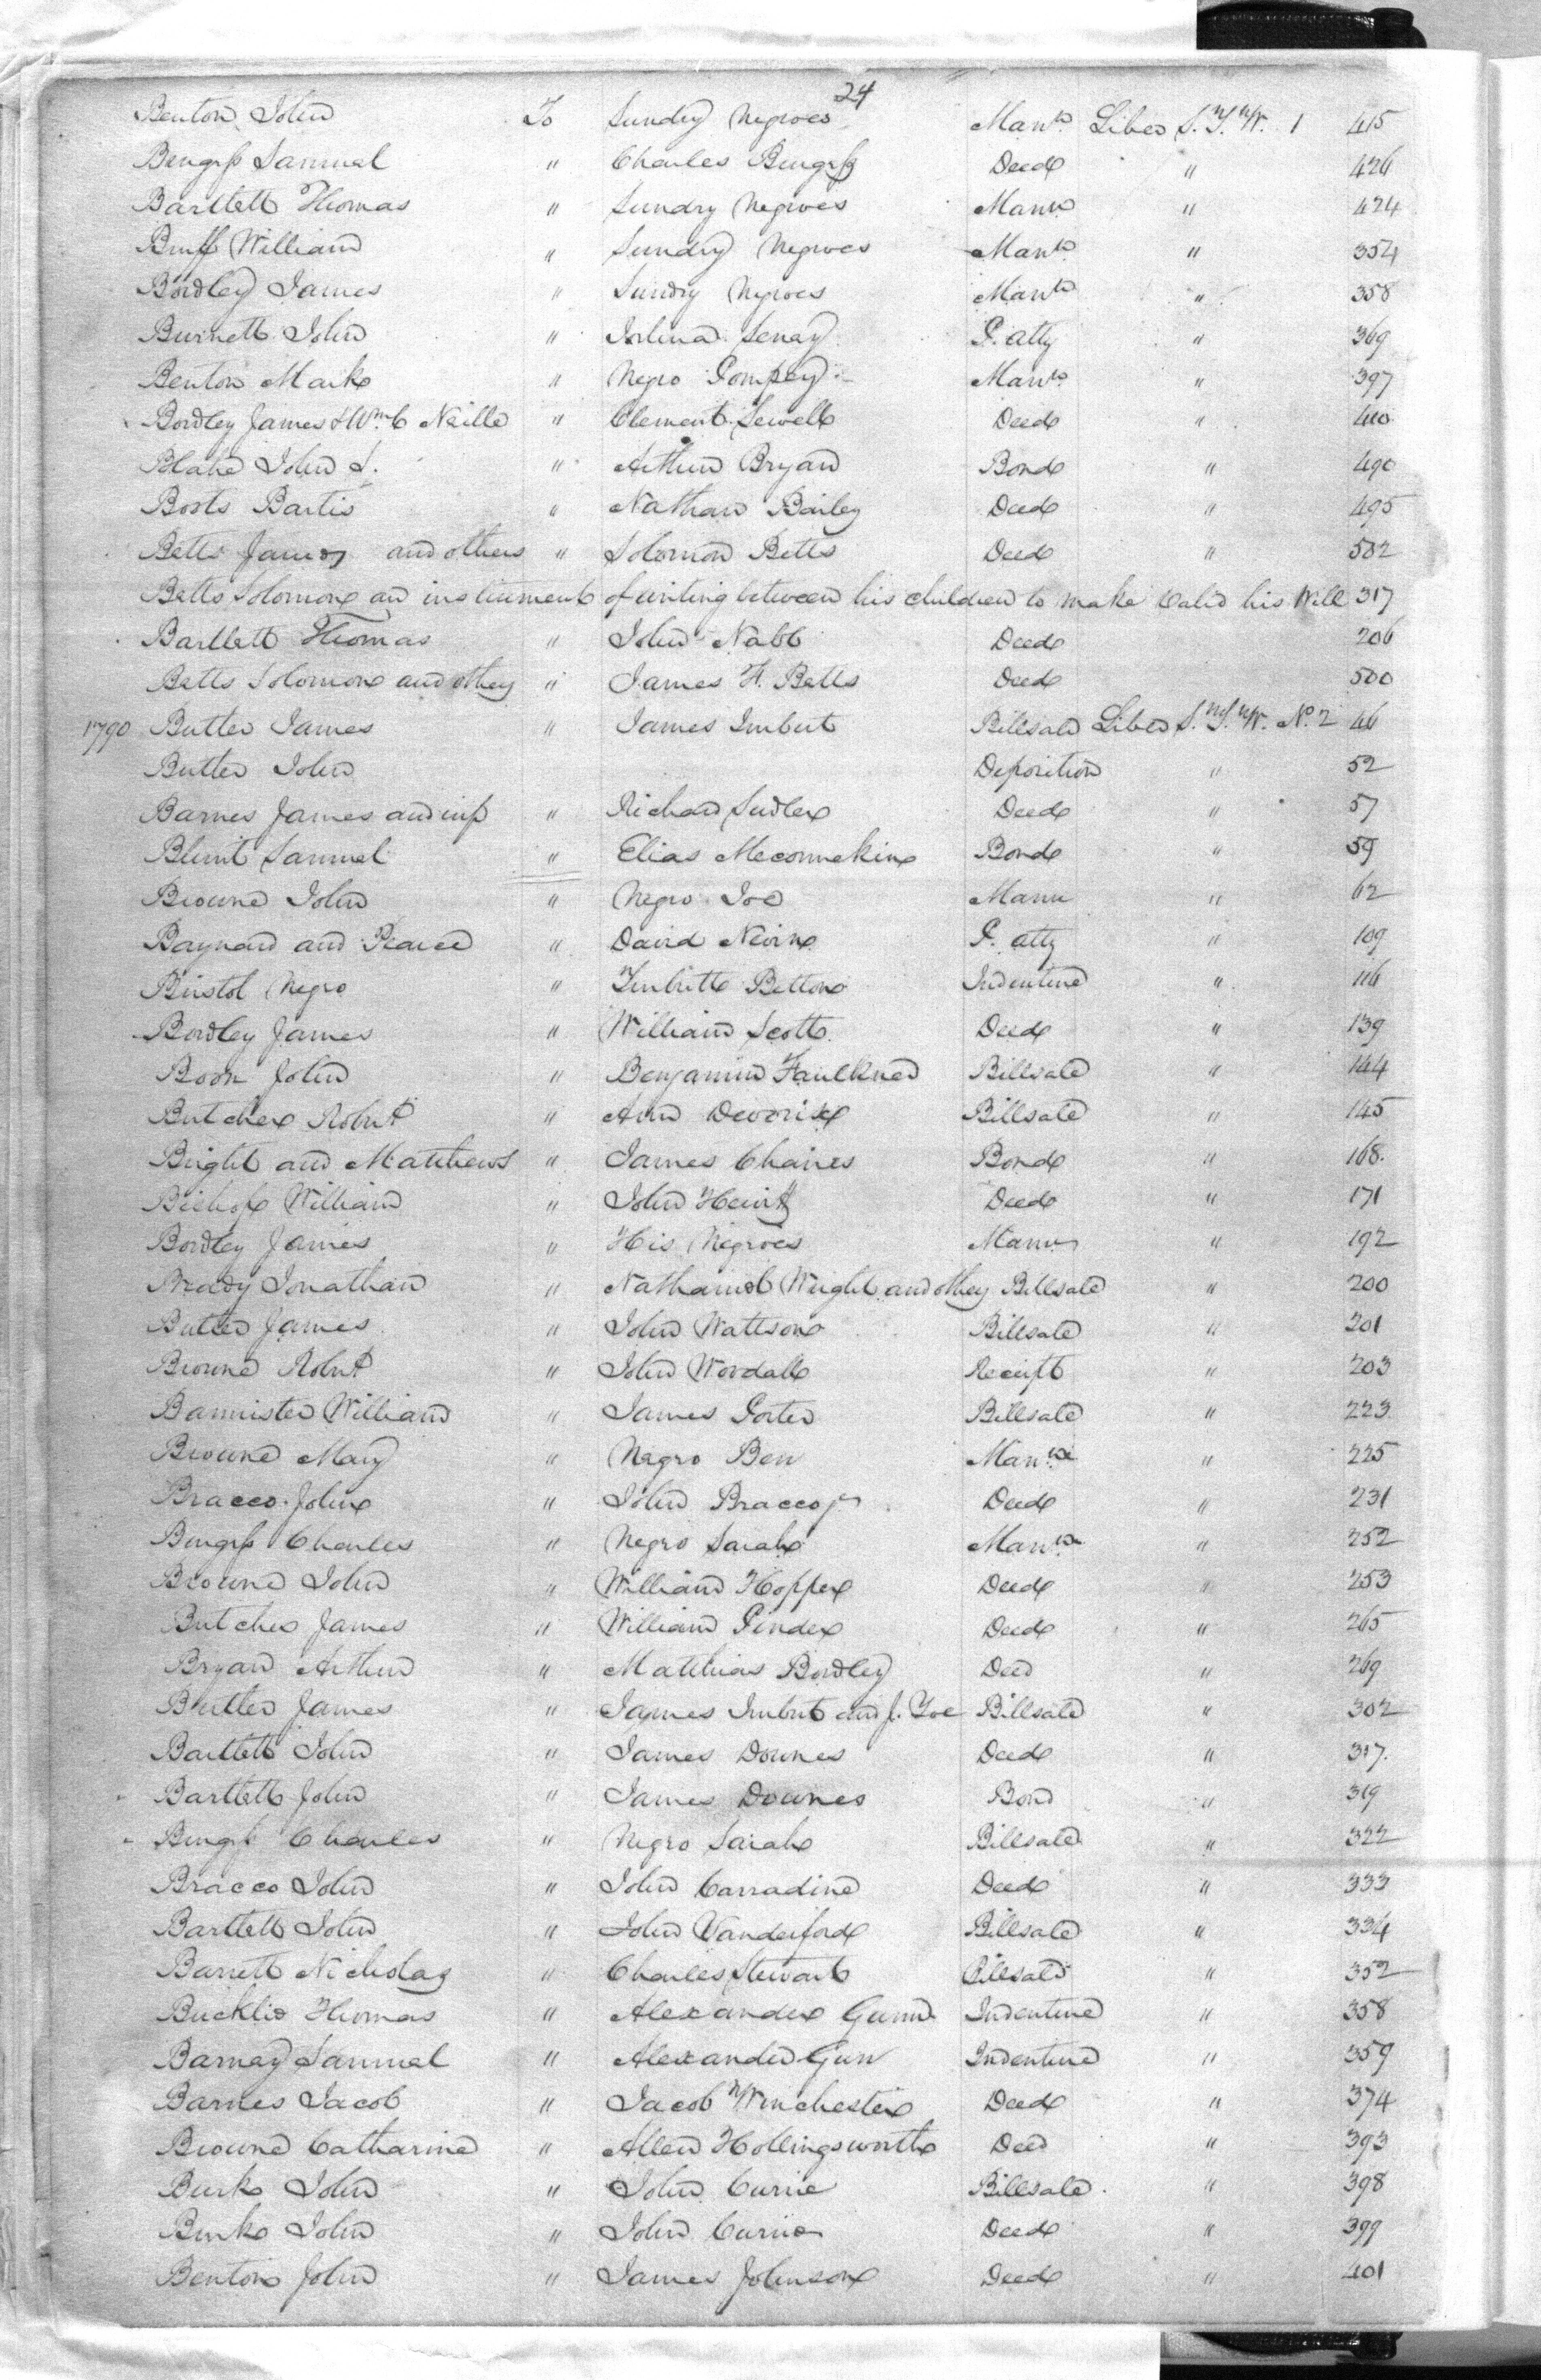 24
Benton John To Sundry Negroes Mann. Liber S.T.W. 1 415
Burgess Samuel " Charles Burgess Deed " 426
Bartlett Thomas " Sundry Negroes Mann " 424
Bruff William " Sundry Negroes Mann. " 354
Bordley James " Sundry Negroes Mann " 358
Burnett John " P. Atty " 369
Benton Mark " Negro Pompey Mann. " 397
Bordley James & Wm. C Neille " Clement Sewell Deed " 410
Blake John S. " Arthur Bryan Bond " 490
Boots Bartis " Nathan Bailey Deed " 495
Betts James and others " Solomon Betts Deed " 502
Betts Solomon an instrument of writing between his children to make valid his Will 317
Bartlett Thomas " John Nabb Deed 206
Betts Solomon and others " James H. Betts Deed 500
1790 Butler James " James Imbert Billsale Liber S.T.W. No. 2 46
Butler John Deposition " 52
Barnes James and wife " Richard Sudler Deed " 57
Blunt Samuel " Elias Meconnekin Bond " 59
Browne John " Negro Joe Mann " 62
Baynard and Pearce " David Nevin P. Atty " 109
Bristol Negro " Turbitt Betton Indenture " 116
Bordley James " William Scott Deed " 139
Boon John " Benjamin Faulkner Billsale " 144
Butcher Robert " Ann Devorix Billsale " 145
Bright and Matthews " James Chaires Bond " 168
Bishop William " John Deed " 171
Bordley James " His Negroes Mann " 192
Bready Jonathan " Nathaniel Wright and others Billsale " 200
Butler James " John Wattson Billsale " 201
Browne Robert " John Wordall Receipt " 203
Bannister William " James Porter Billsale " 223
Browne Mary " Negro Ben Mann. " 225
Bracco John " John Bracco Jr Deed " 231
Burgess Charles " Negro Sarah Mann. " 252
Browne John " William Hopper Deed " 253
Butcher James " William Pinder Deed " 265
Bryan Arthur " Matthias Bordley Deed " 269
Butler James " James Imbert and J. Yoe Billsale " 302
Bartlett John " James Downes Deed " 317
Bartlett John " James Downes Bond " 319
Burgess Charles " Negro Sarah Billsale " 322
Bracco John " John Carradine Deed " 333
Bartlett John " John Vanderford Billsale " 334
Barrett Nicholas " Charles Stewart Billsale " 352
Bucklis Thomas " Alexander Gunn Indenture " 358
Barnay Samuel " Alexander Gun Indenture " 359
Barnes Jacob " Jacob Winchester Deed " 374
Browne Catharine " Allen Hollingsworth Deed " 393
Burk John " John Currie Billsale " 398
Burk John " John Currier Deed " 399
Benton John " James Johnson Deed " 401